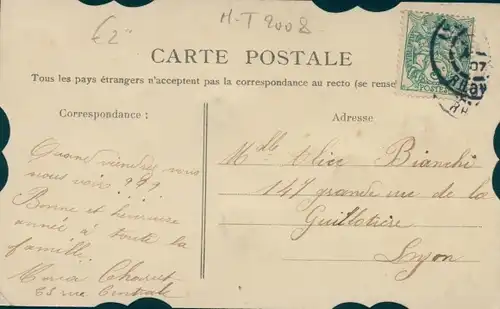 €2
H-T 2008
CARTE POSTALE
Tous les pays étrangers n'acceptent pas la correspondance au recto (se rense
Correspondance :
Adresse
07
POSTES
Quand viendrez vous
nous voir ???
Bonne et heureuse
année à toute la
famille.
Maria
rue Centrale
Mlle Alice Bianchi
147 grande rue de la
Guillotière
Lyon